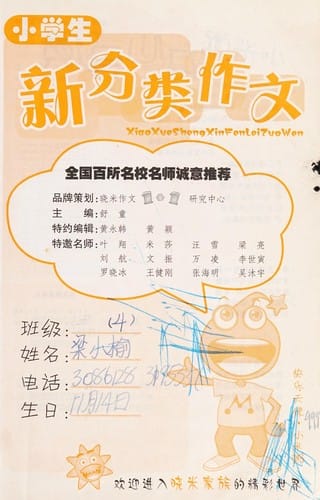 小学生
新分类作文
XiaoXueShengXinFenLeiZuoWen
全国百所名校名师诚意推荐
品牌策划：晓米作文 研究中心
主 编：舒童
特约编辑：黄永韩 黄颖
特邀名师：叶翔 米莎 汪雪 梁亮
刘航 文振 万凌 李世寅
罗晓冰 王健刚 张海明 吴沐宇
班级：(4)
姓名：梁小榆
电话：3086128
生日：11月14日
欢迎进入晓米家族的精彩世界